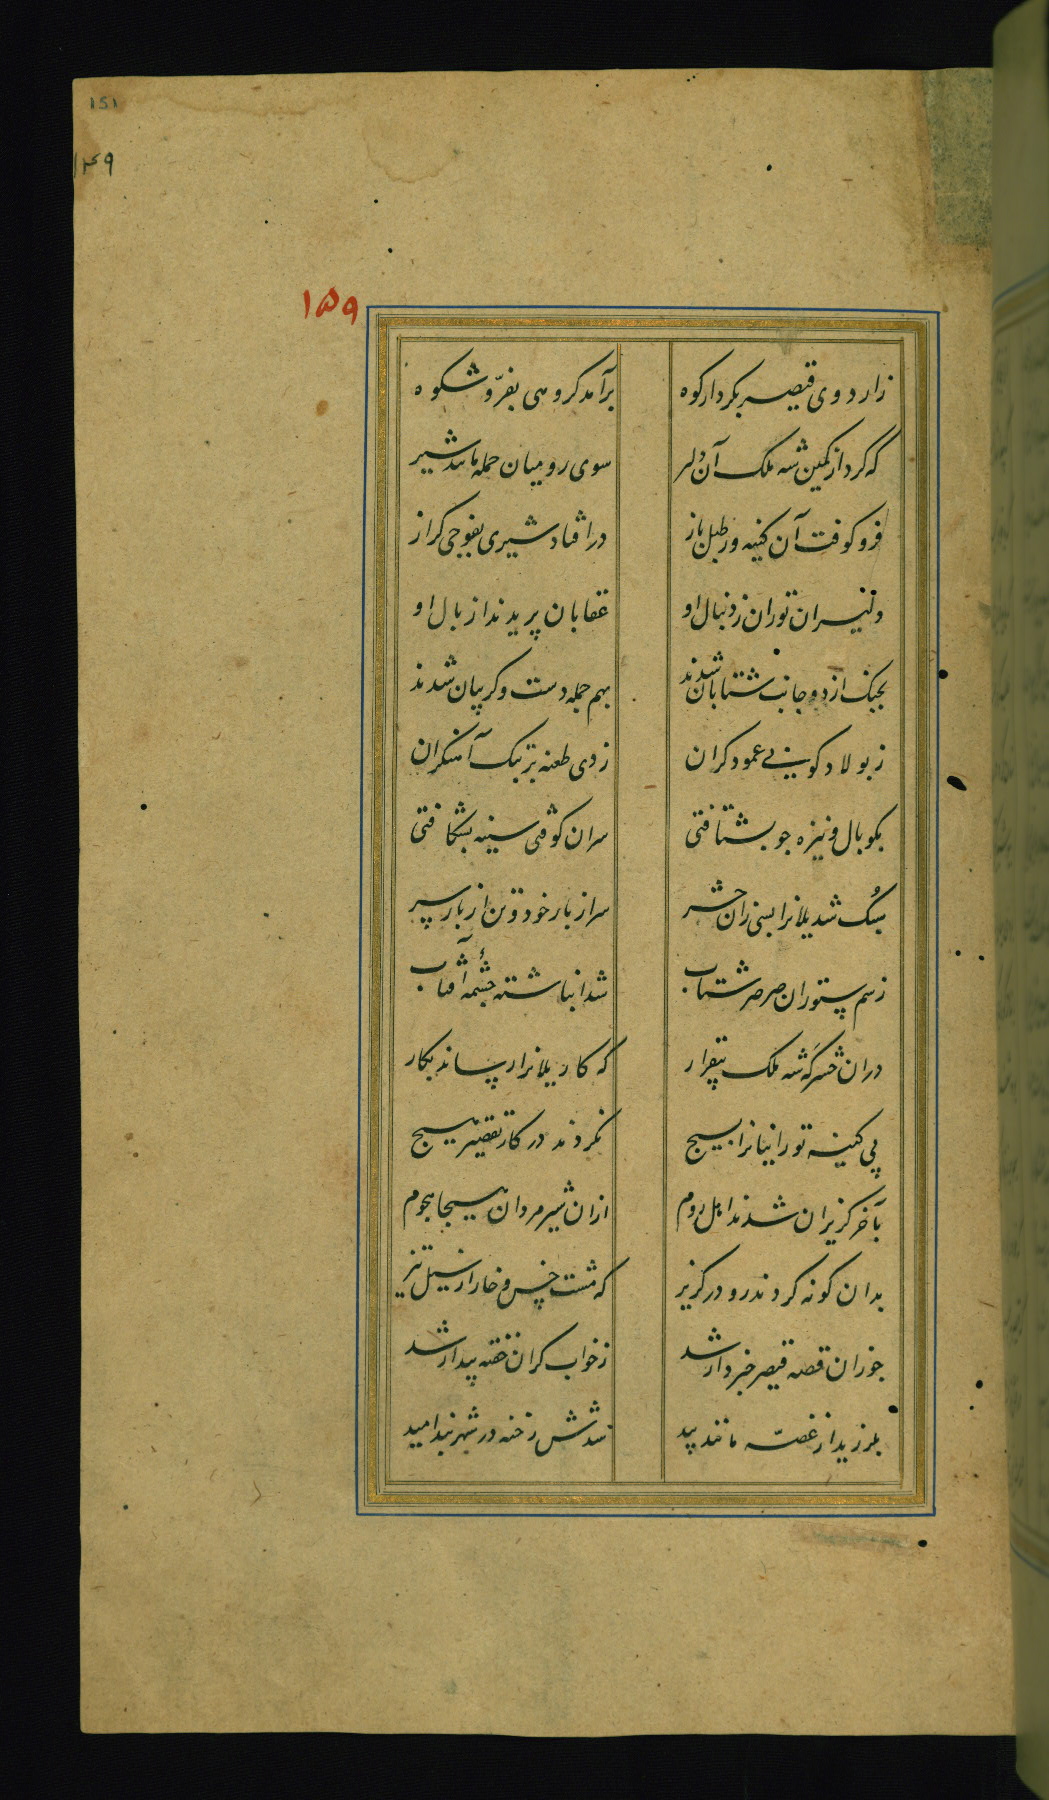 151
۱۴۹
۱۵۹
زاردوی قیصر بکردار کوه برآمد کروهی بفرّ و شکوه
که کرد از کمین شه ملک آن دلیر سوی رومیان حمله مانند شیر
فرو کوفت آن کینه ور طبل باز در افتاد شیری بفوجی کراز
دلیران توران ز دنبال او عقابان پریدند از بال او
بجنک از دو جانب شتابان شدند بهم جمله دست و کریبان شدند
ز پولاد کوپی عمود کران زدی طعنه بر پتک آهنکران
بکوپال و نیزه چو بشتافتی سران کوفتی سینه بشکافتی
سبک شد یلانرا بسی زان حشر سر از بار خود و تن از بار سپر
ز سم ستوران صرصر شتاب شد انباشته چشمهٔ آفتاب
دران حشرکه شه ملک بیقرار که کار یلانرا رساند بکار
پی کینه تورانیانرا بسیج نکردند در کار تقصیر هیچ
بآخر کریزان شدند اهل روم ازان شیرمردان هیجا هجوم
بدان کونه کردند رو در کریز که مشت خس و خار از سیل تیز
چو زان قصه قیصر خبردار شد ز خواب کران خفته بیدار شد
بلرزید از غصّه مانند بید شدش رخنه در شهربند امید